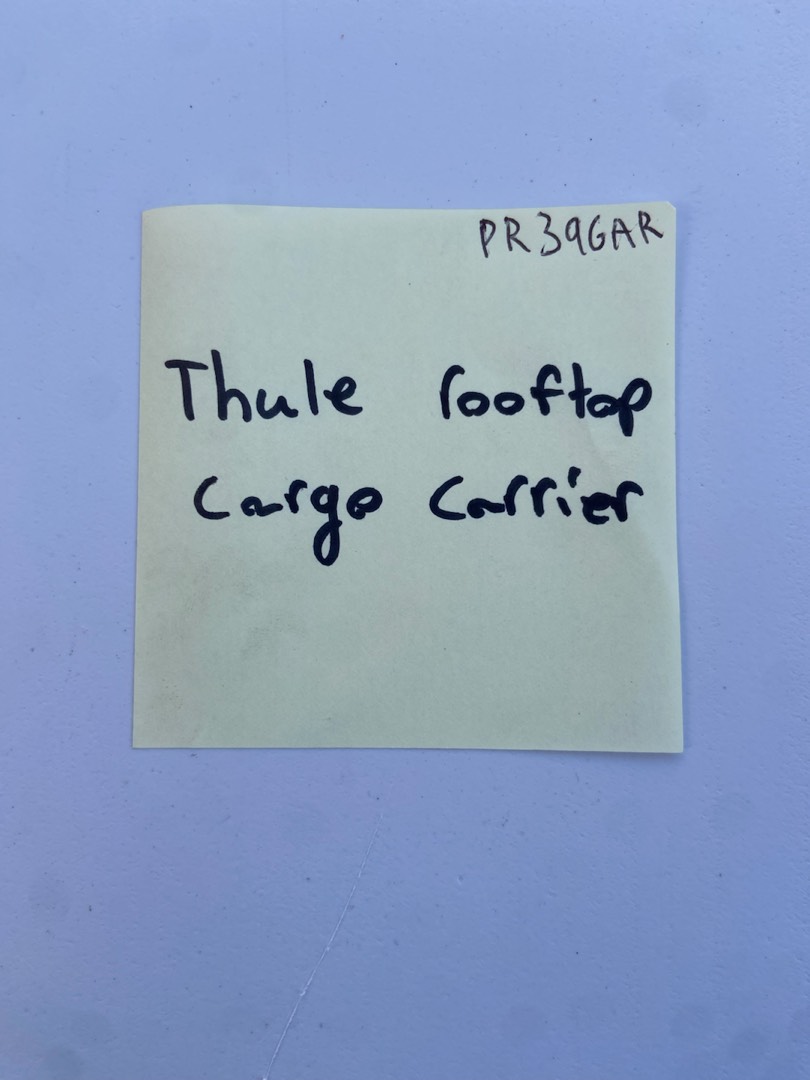 PR39GAR
Thule rooftop
cargo carrier